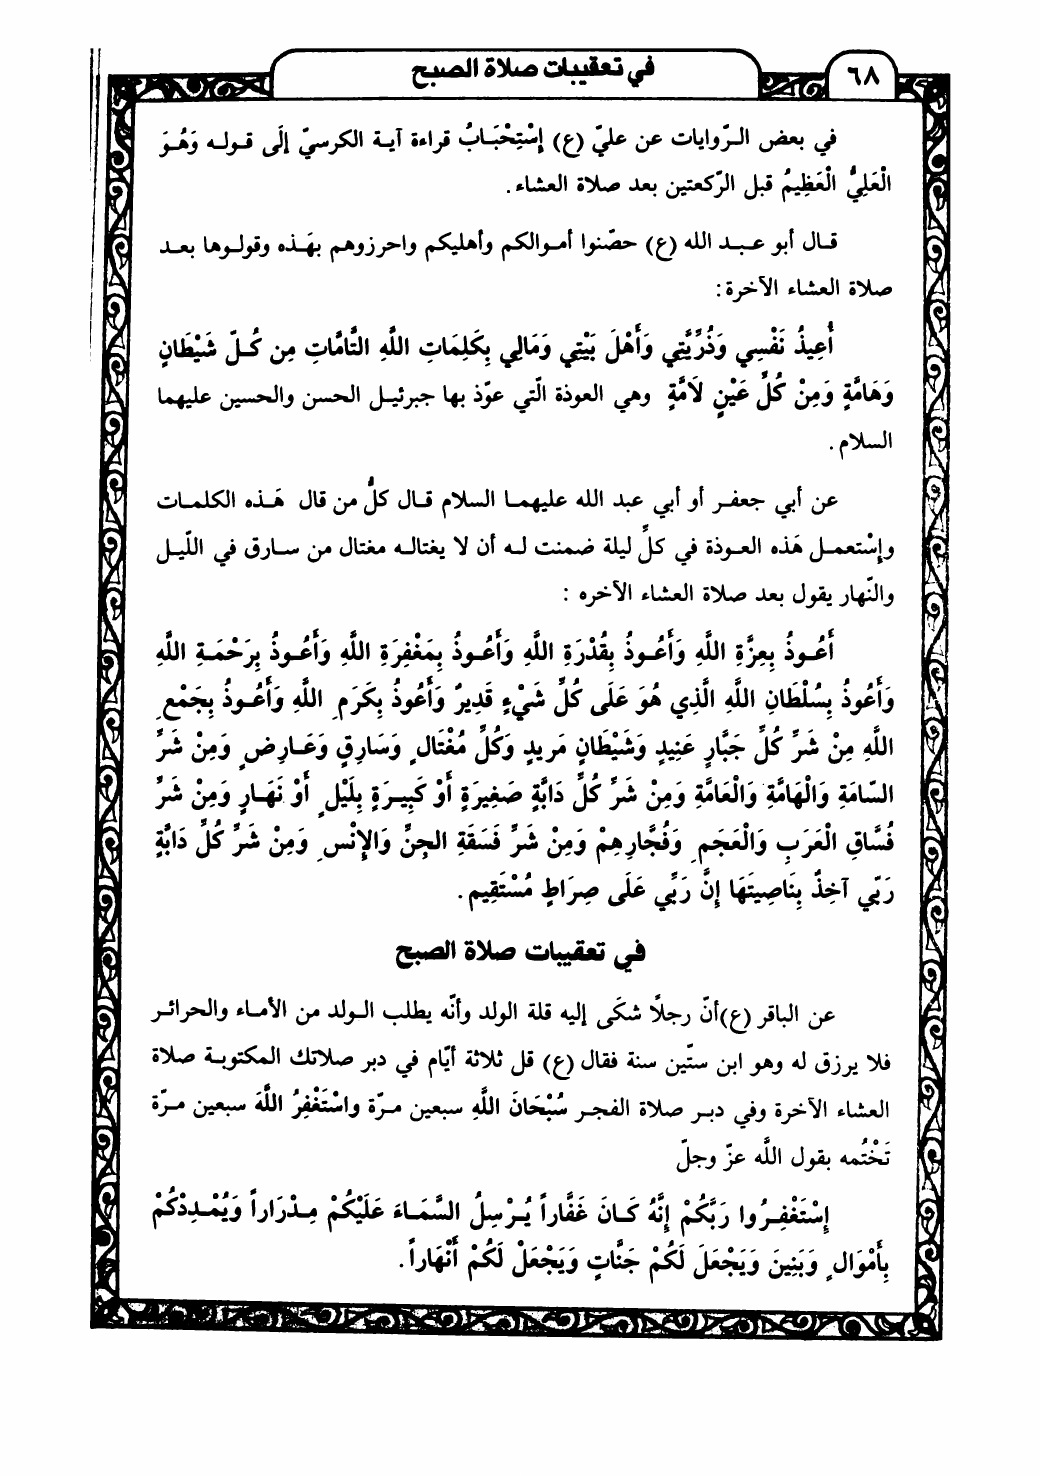 في تعقيبات صلاة الصبح
٦٨
في بعض الرّوايات عن عليّ (ع) إسْتِحْبَابُ قراءة آية الكرسيّ إلَى قوله وَهُوَ
الْعَلِيُّ الْعَظِيمُ قبل الرّكعتين بعد صلاة العشاء.
قال أبو عبد الله (ع) حصّنوا أموالكم وأهليكم واحرزوهم بهَذه وقولوها بعد
صلاة العشاء الآخرة:
أُعِيذُ نَفْسِي وَذُرِّيَّتِي وَأَهْلَ بَيْتِي وَمَالِي بِكَلِمَاتِ اللَّهِ التَّامَّاتِ مِن كُلّ شَيْطَانٍ
وَهَامَّةٍ وَمِنْ كُلِّ عَيْنٍ لَامَّةٍ وهي العوذة الّتي عوّذ بها جبرئيل الحسن والحسين عليهما
السلام.
عن أبي جعفر أو أبي عبد الله عليهما السلام قال كلُّ من قال هَذه الكلمات
وإسْتعمل هَذه العوذة في كلِّ ليلة ضمنت له أن لا يغتاله مغتال من سارق في اللّيل
والنّهار يقول بعد صلاة العشاء الآخره :
أَعُوذُ بِعِزَّةِ اللَّهِ وَأَعُوذُ بِقُدْرَةِ اللَّهِ وَأَعُوذُ بِمَغْفِرَةِ اللَّهِ وَأَعُوذُ بِرَحْمَةِ اللَّهِ
وَأَعُوذُ بِسُلْطَانِ اللَّهِ الَّذِي هُوَ عَلَى كُلِّ شَيْءٍ قَدِيرٌ وَأَعُوذُ بِكَرَمِ اللَّهِ وَأَعُوذُ بِجَمْعِ
اللَّهِ مِنْ شَرِّ كُلِّ جَبَّارٍ عَنِيدٍ وَشَيْطَانٍ مَرِيدٍ وَكُلِّ مُغْتَالٍ وَسَارِقٍ وَعَارِضٍ وَمِنْ شَرِّ
السّامَةِ وَالْهَامَّةِ وَالْعَامَّةِ وَمِنْ شَرِّ كُلِّ دَابَّةٍ صَغِيرَةٍ أَوْ كَبِيرَةٍ بِلَيْلٍ أَوْ نَهَارٍ وَمِنْ شَرِّ
فُسَّاقِ الْعَرَبِ وَالْعَجَمِ وَفُجَّارِهِمْ وَمِنْ شَرِّ فَسَقَةِ الجِنِّ وَالإِنْسِ وَمِنْ شَرِّ كُلِّ دَابَّةٍ
رَبّي آخِذٌ بِنَاصِيتَهَا إِنَّ رَبِّي عَلَى صِرَاطٍ مُسْتَقِيمٍ.
في تعقيبات صلاة الصبح
عن الباقر (ع) أنّ رجلاً شكَى إليه قلة الولد وأنّه يطلب الولد من الأماء والحرائر
فلا يرزق له وهو ابن ستّين سنة فقال (ع) قل ثلاثة أيّام في دبر صلاتك المكتوبة صلاة
العشاء الآخرة وفي دبر صلاة الفجر سُبْحَانَ اللَّهِ سبعين مرّة واسْتَغْفِرُ اللَّهَ سبعين مرّة
تَخْتُمه بقول اللَّه عزّ وجلّ
إِسْتَغْفِرُوا رَبَّكُمْ إِنَّهُ كَانَ غَفَّاراً يُرْسِلُ السَّمَاءَ عَلَيْكُمْ مِدْرَاراً وَيُمْدِدْكُمْ
بِأَمْوَالٍ وَبَنِينَ وَيَجْعَلَ لَكُمْ جَنَّاتٍ وَيَجْعَلْ لَكُمْ أَنْهَاراً.